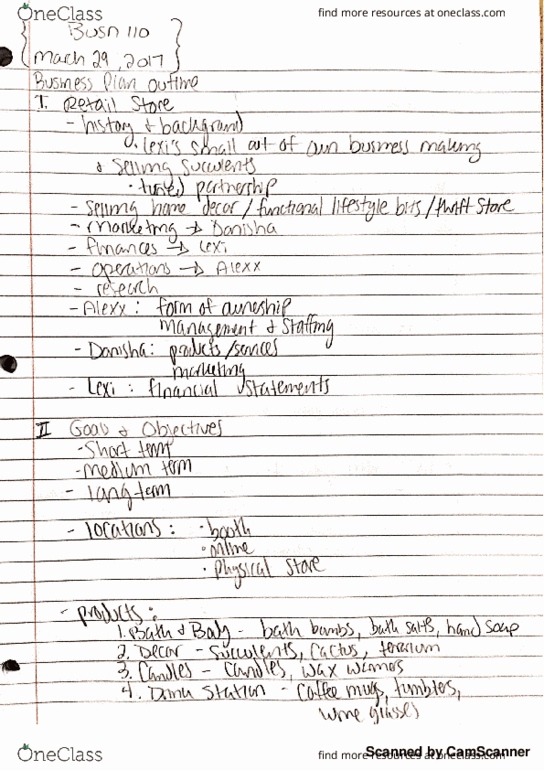 OneClass
find more resources at oneclass.com
Busn 110
Mach 29, 2017
Business Plan outline
I. Retail Store
- history & background
• Lexi's small out of own business making
& selling succulents
• turned partnership
- Selling home decor / functional lifestyle bits / thrift store
- marketing → Danisha
- finances → Lexi
- operations → Alexx
- research
- Alexx : form of ownership
management & Staffing
- Danisha: products/services
marketing
- Lexi : financial statements
II Goals & Objectives
- Short term
- medium term
- long term
- locations : • booth
• online
• Physical Store
- products :
1. Bath & Body - bath bombs, bath salts, hand soap
2. Decor - Succulents, Cactus, terarium
3. Candles - Candles, wax warmers
4. Drink Station - Coffee mugs, tumblers,
wine glasses
OneClass
find more resources at oneclass.com
Scanned by CamScanner